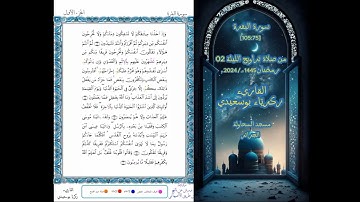 سورة البقرة
الجزء الأول
وإذ أخذنا ميثاقكم لا تسفكون دماءكم ولا تخرجون
أنفسكم من دياركم ثم أقررتم وأنتم تشهدون ثم أنتم
هؤلاء تقتلون أنفسكم وتخرجون فريقا منكم من
ديارهم تظاهرون عليهم بالإثم والعدوان وإن يأتوكم
أسارى تفادوهم وهو محرم عليكم إخراجهم أفتؤمنون
ببعض الكتاب وتكفرون ببعض فما جزاء من يفعل
ذلك منكم إلا خزي في الحياة الدنيا ويوم القيامة
يردون إلى أشد العذاب وما الله بغافل عما يعملون
أولئك الذين اشتروا الحياة الدنيا بالآخرة فلا يخفف
عنهم العذاب ولا هم ينصرون ولقد آتينا موسى
الكتاب وقفينا من بعده بالرسل وآتينا عيسى ابن
مريم البينات وأيدناه بروح القدس أفكلما جاءكم رسول
بما لا تهوى أنفسكم استكبرتم ففريقا كذبتم
وفريقا تقتلون وقالوا قلوبنا غلف بل لعنهم الله
بكفرهم فقليلا ما يؤمنون
القارئ:
زكرياء بوسعيدي
سورة البقرة
[105:75]
من صلاة تراويح الليلة 02
رمضان 1445، 2024
القارئ:
زكرياء بوسعيدي
مسجد